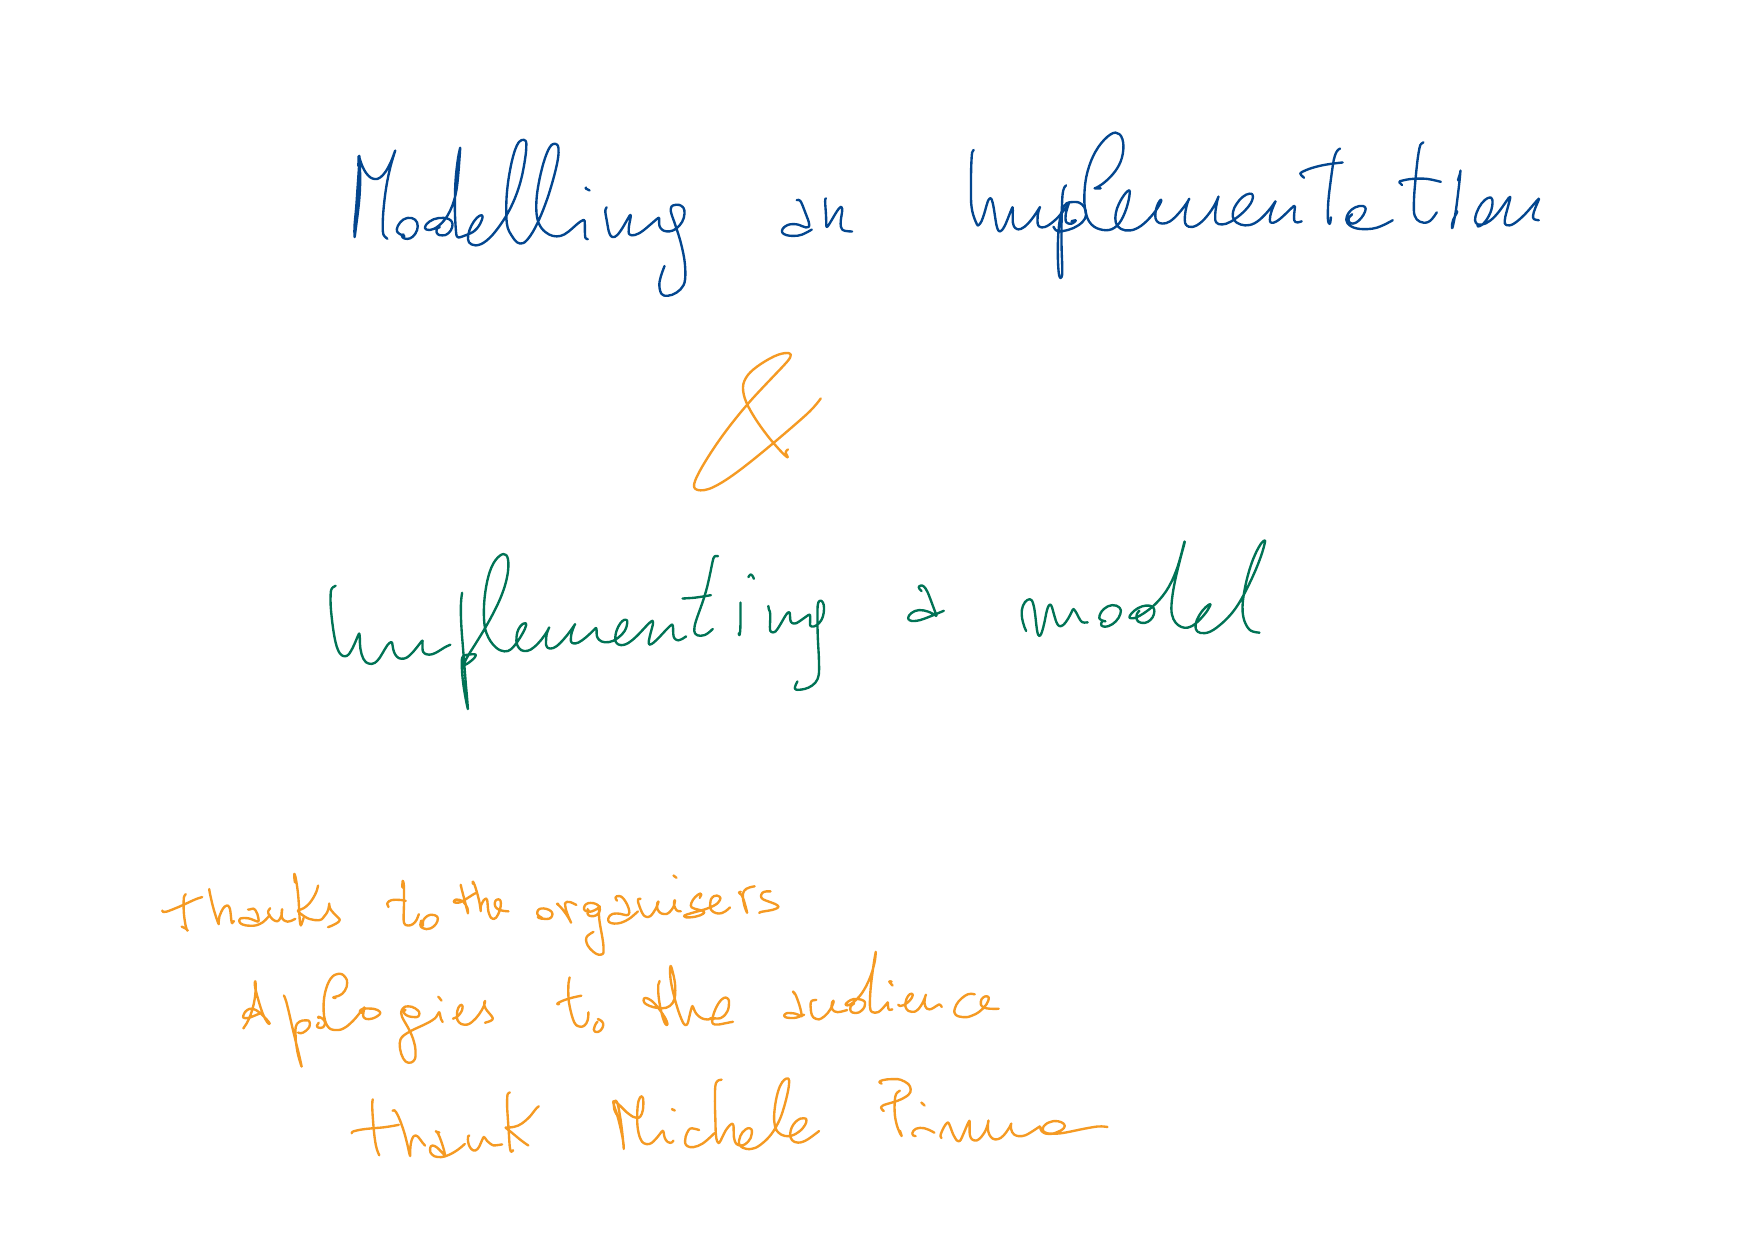 Modelling an Implementation
&
Implementing a model
Thanks to the organisers
Apologies to the audience
thank Michele Pinna